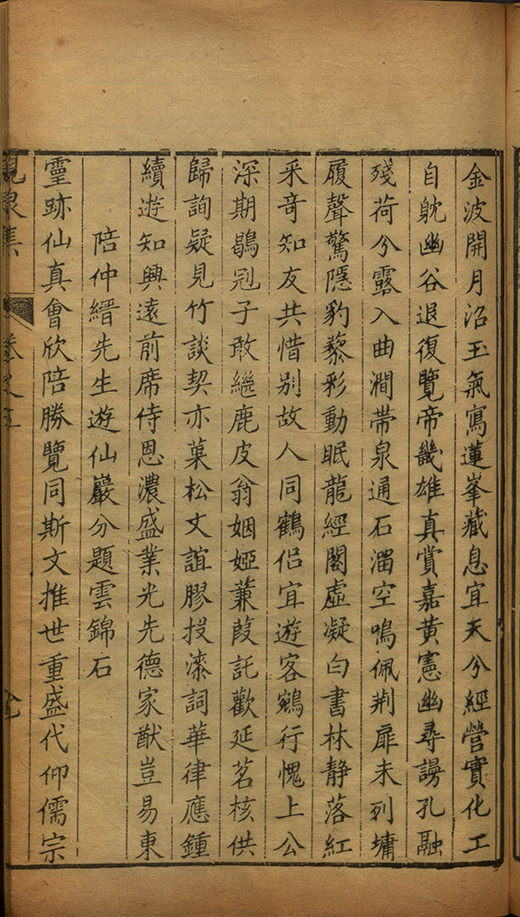 金波開月沼玉氣寫蓮峯藏息宜天兮經營實化工
自躭幽谷退復覽帝畿雄真賞嘉黄憲幽尋謗孔融
殘荷兮露入曲澗帶泉通石溜空鳴佩荆扉未列墉
履聲驚隱豹藜彩動眠龍經閣虚凝白書林静落紅
采竒知友共惜别故人同鶴侣宜遊客鵷行愧上公
深期鶡冠子敢繼鹿皮翁姻婭蒹葭託歡延茗核供
歸詢疑見竹談契亦菓松文誼膠投漆詞華律應鍾
續遊知興遠前席侍恩濃盛業光先德家猷豈易東
陪仲縉先生遊仙巖分題雲錦石
靈跡仙真會欣陪勝覽同斯文推世重盛代仰儒宗
峴泉集
卷之五